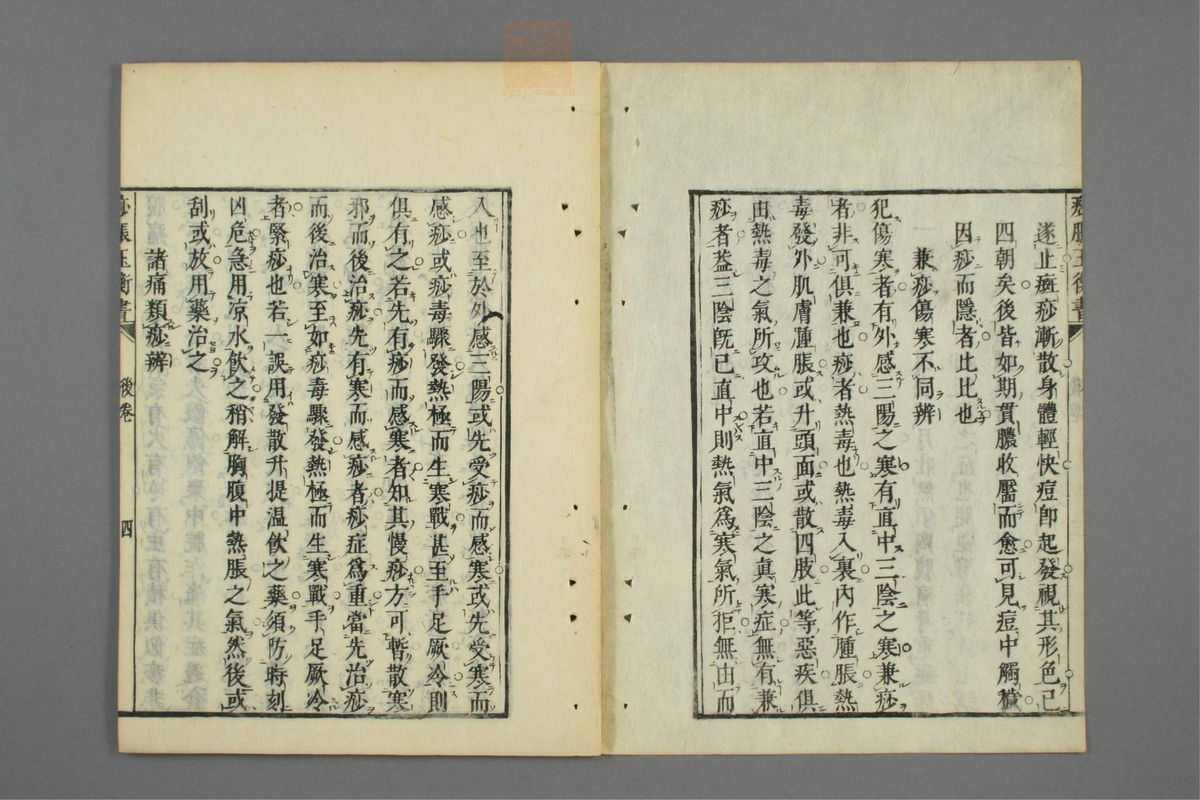 遂止斑痧漸散身體輕快痘卽起發視其形色已
四朝矣後皆如期貫膿收靨而愈可見痘中觸穢
因痧而隱者比比也
兼痧傷寒不同辨
犯傷寒者有外感三陽之寒有直中三陰之寒兼痧
者非可俱兼也痧者熱毒也熱毒入裏內作腫脹熱
毒發外肌膚腫脹或升頭面或散四肢此等惡疾俱
由熱毒之氣所攻也若直中三陰之真寒症無有兼
痧者葢三陰旣已直中則熱氣爲寒氣所拒無由而
入也至於外感三陽或先受痧而感寒或先受寒而
感痧或痧毒驟發熱極而生寒戰甚至手足厥冷則
俱有之若先有痧而感寒者知其慢痧方可暫散寒
邪而後治痧先有寒而感痧者痧症爲重當先治痧
而後治寒至如痧毒驟發熱極而生寒戰手足厥冷
者緊痧也若一誤用發散升提温飲之藥須防時刻
凶危急用凉水飲之稍解胸腹中熱脹之氣然後或
刮或放用藥治之
諸痛類痧辨
痧脹玉衡書
後卷
四
zysj.com.cn